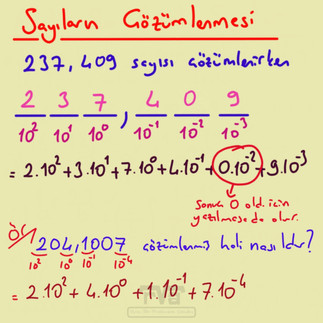 Sayıların Çözümlenmesi
237,409 sayısı çözümlenirken
2 3 7 , 4 0 9
10² 10¹ 10⁰ 10⁻¹ 10⁻² 10⁻³
= 2.10² + 3.10¹ + 7.10⁰ + 4.10⁻¹ + 0.10⁻² + 9.10⁻³
sonuç 0 old. için
yazılmasa da olur.
Ör/ 204,1007 çözümlenmiş hali nasıldır?
10² 10⁰ 10⁻¹ 10⁻⁴
= 2.10² + 4.10⁰ + 1.10⁻¹ + 7.10⁻⁴